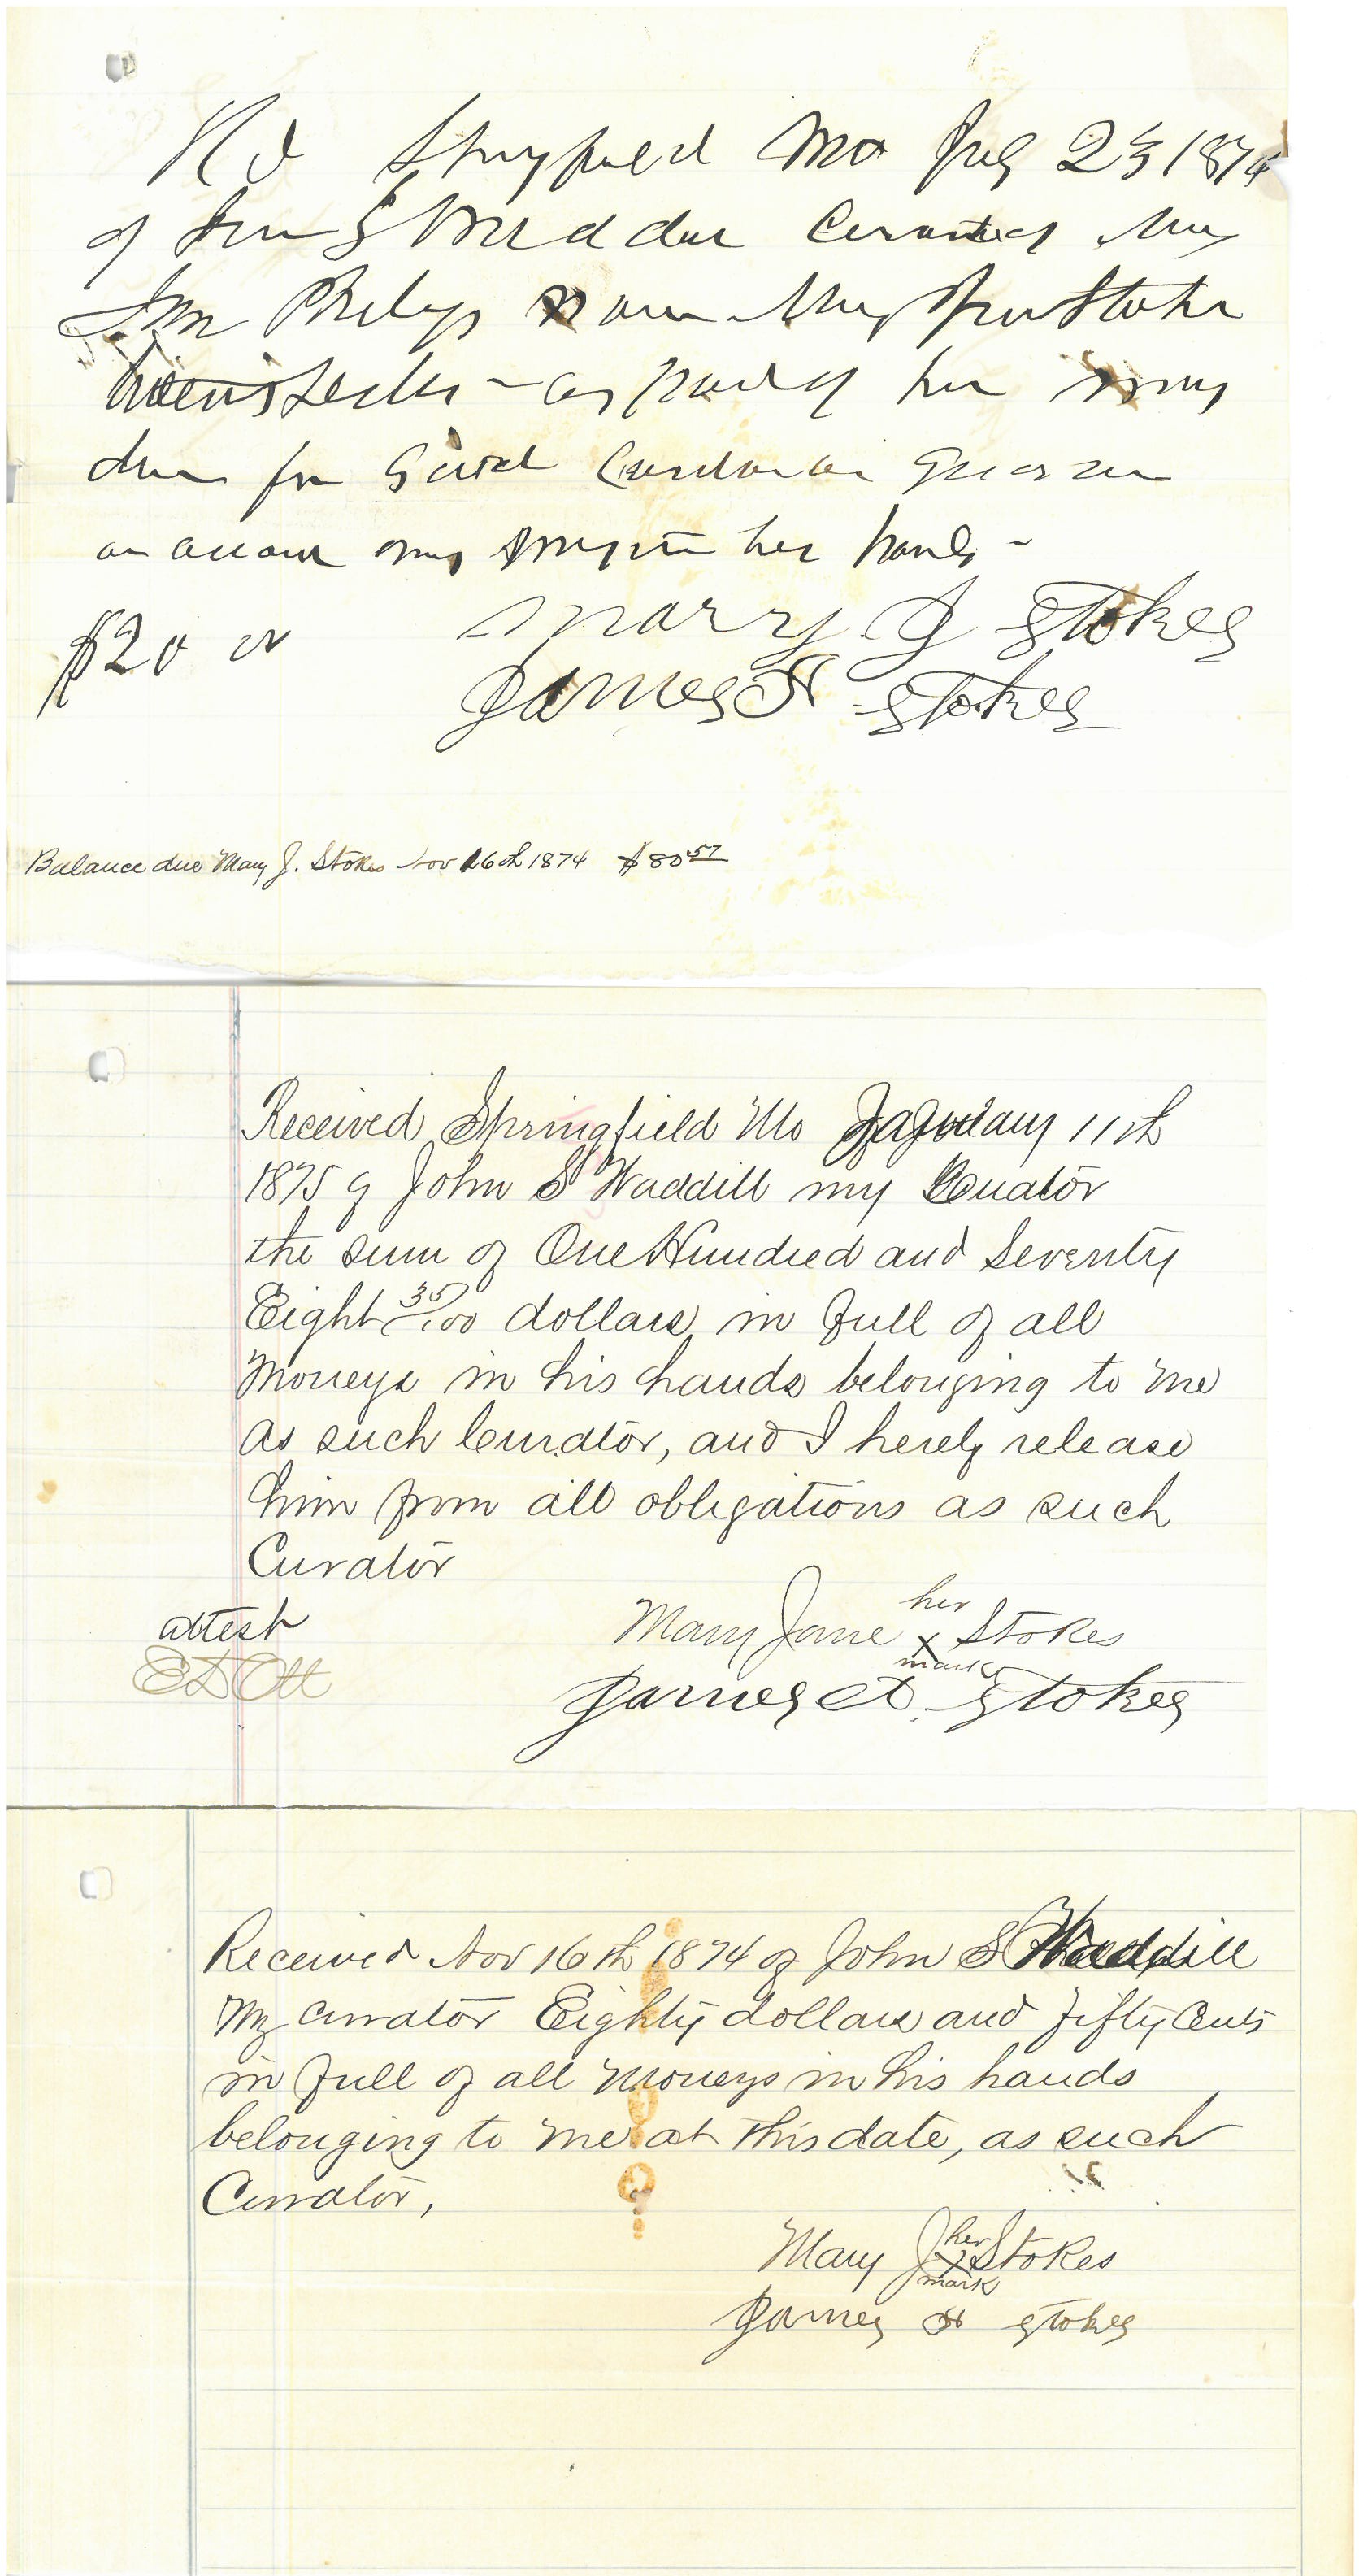 Rd Springfield Mo July 23 1874
of John S Waddill Curator of Mary
Phelps now Mary Jane Stokes
as part of her money
due from said Curator
on account my money in his hands -
Marry J Stokes
$20 00
James H Stokes
Balance due Mary J. Stokes Nov 16th 1874 $80.57
Received Springfield Mo January 11th
1875 of John S Waddill my Curator
the sum of One Hundred and Seventy
Eight 35/100 dollars in full of all
Moneys in his hands belonging to me
as such Curator, and I hereby release
him from all obligations as such
Curator
her
attest Mary Jane x Stokes
mark
ED Ott James H Stokes
Received Nov 16th 1874 of John S Waddill
My curator Eighty dollars and fifty Cents
in full of all Moneys in his hands
belonging to me at this date, as such
Curator,
her
Mary J x Stokes
mark
James H Stokes